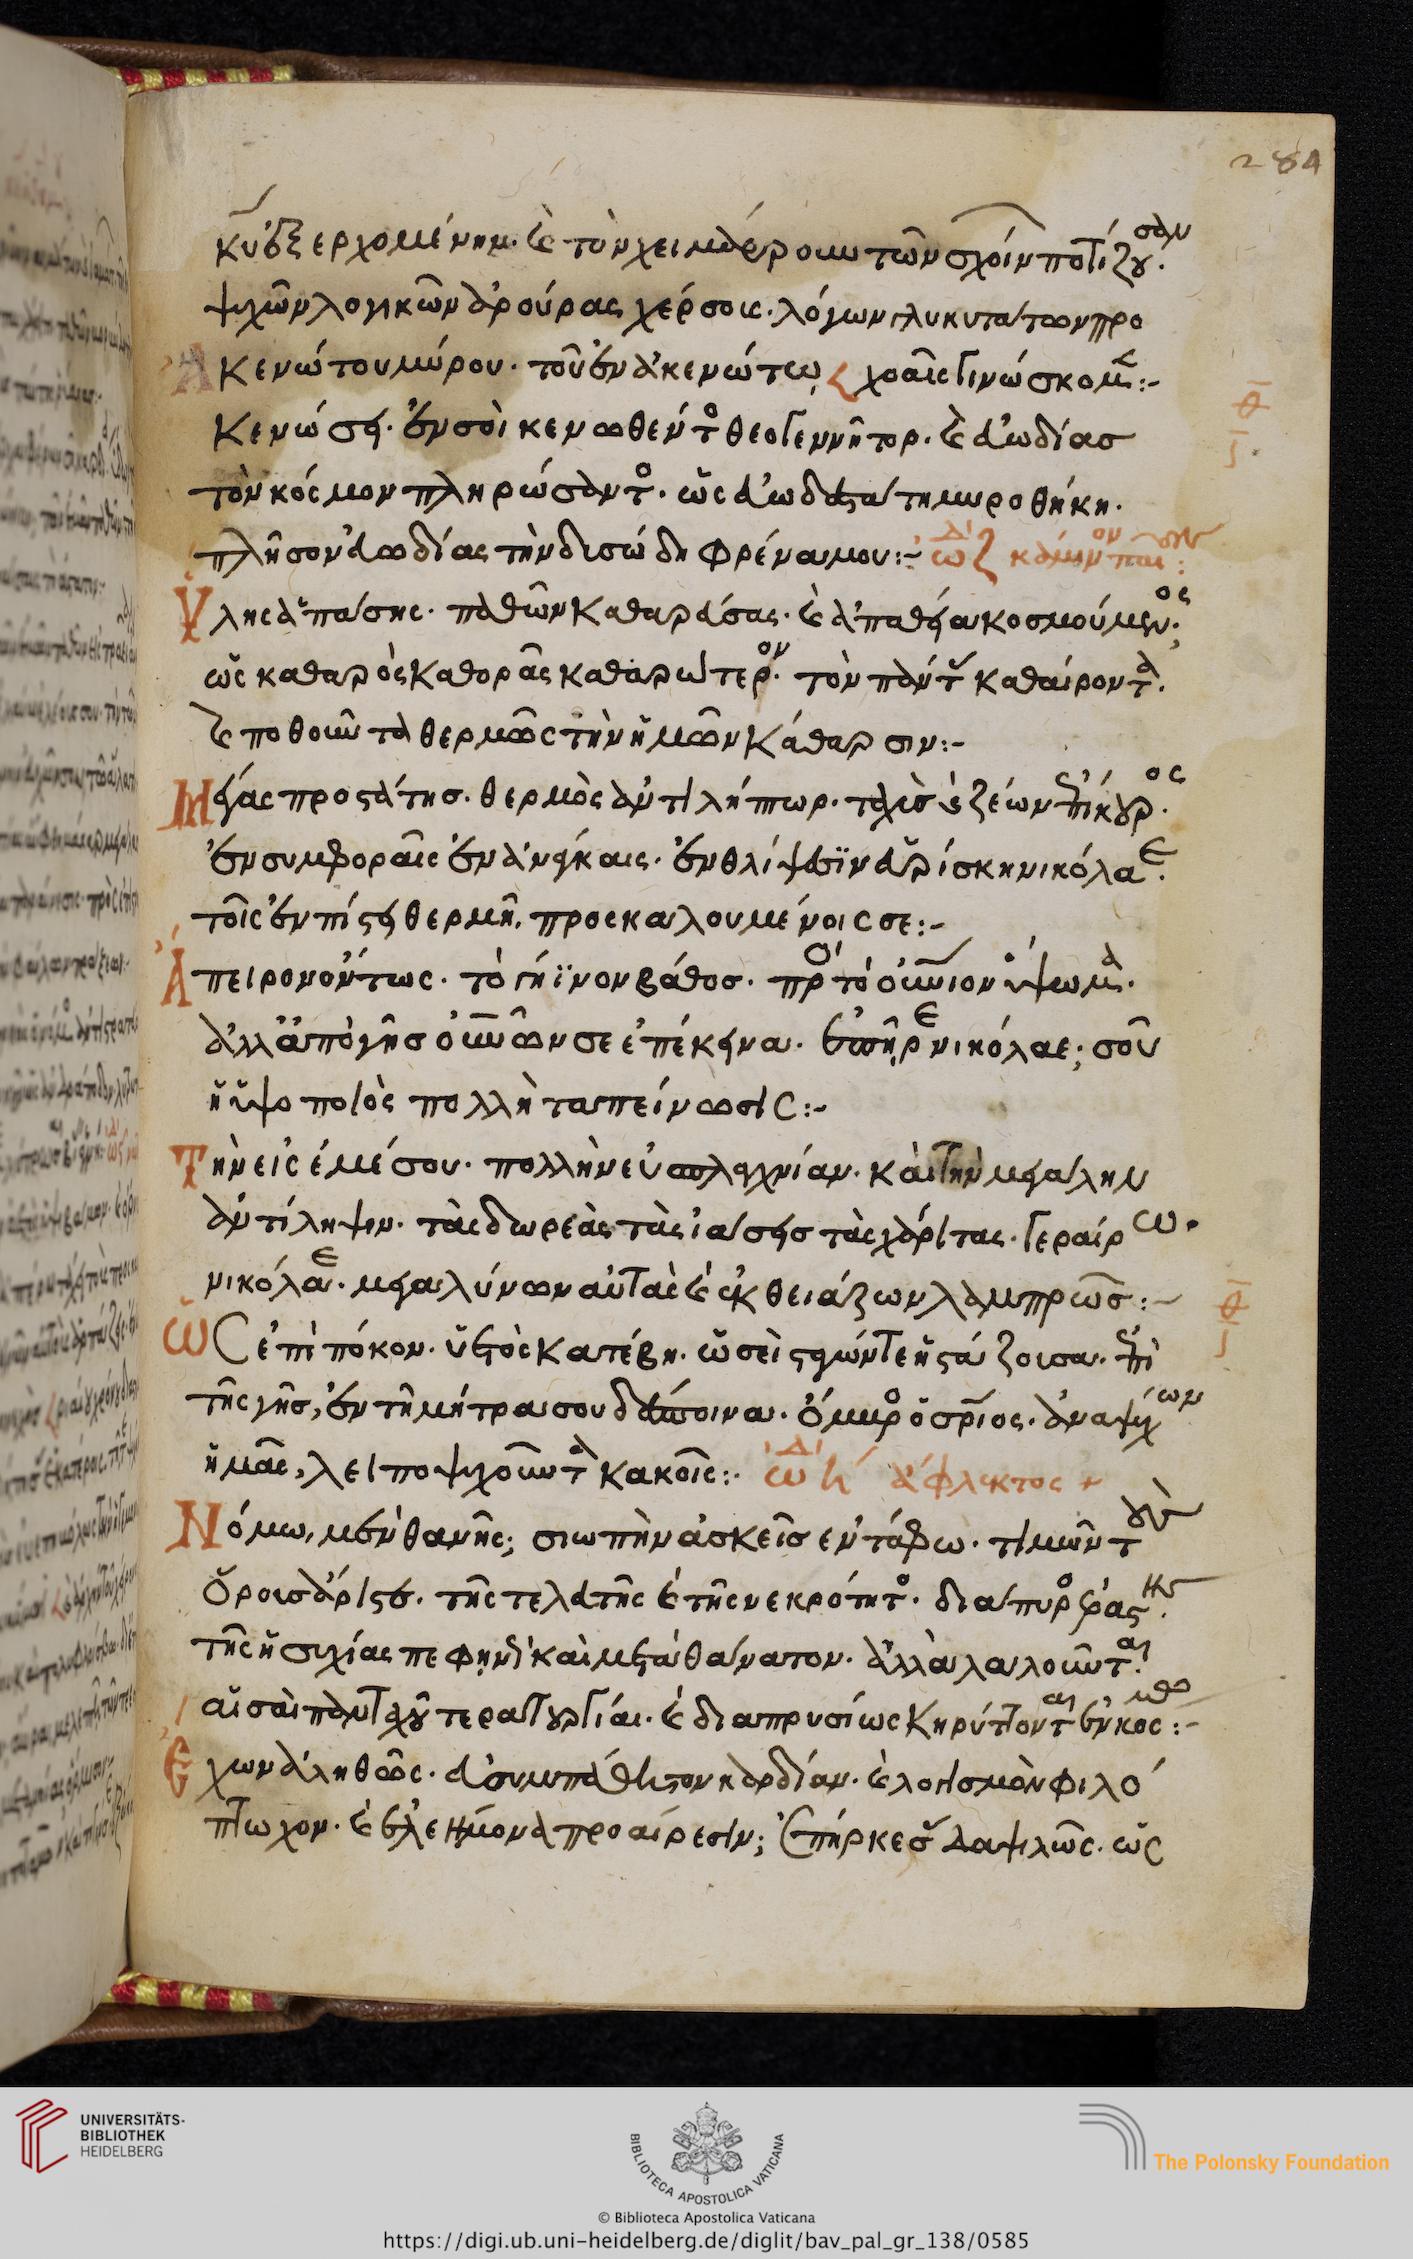 284
κυ ἐξερχομένην. καὶ τὸν χειμάρρουν τῶν σχοίν ποτίζουσαν.
ψυχῶν λογικῶν ἀρούρας χέρσοις. λόγων γλυκυτάτων προ
Κενώτου μύρου. τοῦ ἐν ἀκενώτω χοαῖς γινώσκομεν:-
Κενώσει. ἐν σοὶ κενωθέντος θεογεννήτορ. καὶ εὐωδίας
τὸν κόσμον πληρώσαντος. ὡς εὐωδεστάτη μυροθήκη.
πλῆσον εὐωδίας τὴν δυσώδη φρένα μου:- ὠδ ζ κάμινον παι
Ὕλης ἁπάσης. παθῶν καθαρεύσας. καὶ ἀπαθεία κοσμούμενος.
ὡς καθαρὸς καθορᾶς καθαρώτερον. τὸν πάντας καθαίροντα.
καὶ ποθοῦντα θερμῶς τὴν ἡμῶν κάθαρσιν:-
Μέγας προστάτης. θερμὸς ἀντιλήπτωρ. ταχὺς ἐξ ἐπίκουρος.
ἐν συμφοραῖς ἐν ἀνάγκαις. ἐν θλίψεσιν εὑρίσκη νικόλαε.
τοῖς ἐν πίστει θερμῆ. προσκαλουμένοις σε:-
Ἀπειρονόντως. τὸ γήϊνον βάθος. πρὸς τὸ οὐράνιον ὕψωμα.
ἀλλ' ἀπὸ γῆς οὐρανῶν σε ἐπέκεινα. ἐπῆρε νικόλαε; σοῦ
ἡ ὑψοποιὸς πολλὴ ταπείνωσις:-
Τὴν εἰς ἐμέ σου. πολλὴν εὐσπλαγχνίαν. καὶ τὴν μεγάλην
ἀντίληψιν. τὰς δωρεὰς τὰς ἰάσεις τὰς χάριτας. γεραίρω.
νικόλαε. μεγαλύνων αὐτὰς καὶ ἐκθειάζων λαμπρῶς:-
Ὡς ἐπὶ πόκον. ὑετὸς κατέβη. ὡσεὶ σταγών τε ἡ στάζουσα. ἐπὶ
τῆς γῆς, ἐν τῆ μήτρα σου δέσποινα. ὄμβρος ὁ σωτήριος. ἀναψύχων
ἡμᾶς, λειποψυχοῦντας κακοῖς:- ὠδ η ἄφλεκτος +
Νόμω, μὲν θανῆς; σιωπὴν ἀσκεῖς ἐν τάφω. τιμῶν τοὺς
ὅρους ἄριστε. τῆς τελευτῆς καὶ τῆς νεκρότητος.
τῆς ἡσυχίας καὶ μετὰ θάνατον. ἀλλὰ λαλοῦνται.
αἱ σαὶ πανταχοῦ τερατουργίαι. καὶ διαπρυσίως κηρύττονται ἐν κόσμω:-
Ἔχων ἀληθῶς. εὐσυμπάθητον καρδίαν. καὶ λογισμὸν φιλό
πτωχον. καὶ ἐλεήμονα προαίρεσιν; ἐπήρκεσας δαψιλῶς. ὡς
UNIVERSITÄTS-
BIBLIOTHEK
HEIDELBERG
BIBLIOTECA APOSTOLICA VATICANA
The Polonsky Foundation
© Biblioteca Apostolica Vaticana
https://digi.ub.uni-heidelberg.de/diglit/bav_pal_gr_138/0585